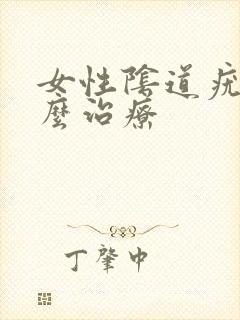 女性陰道疣
麼治療
丁肇中